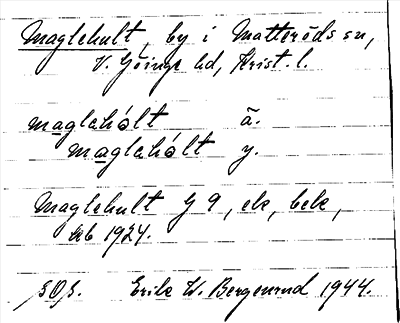 Maglehult, by i Matteröds sn,
V. Göinge hd, Krist. l.
maglahólt ä.
maglahólt y.
Maglehult G 9, ek, bek,
kb 1924.
SOS. Erik W. Bergenrud 1944.